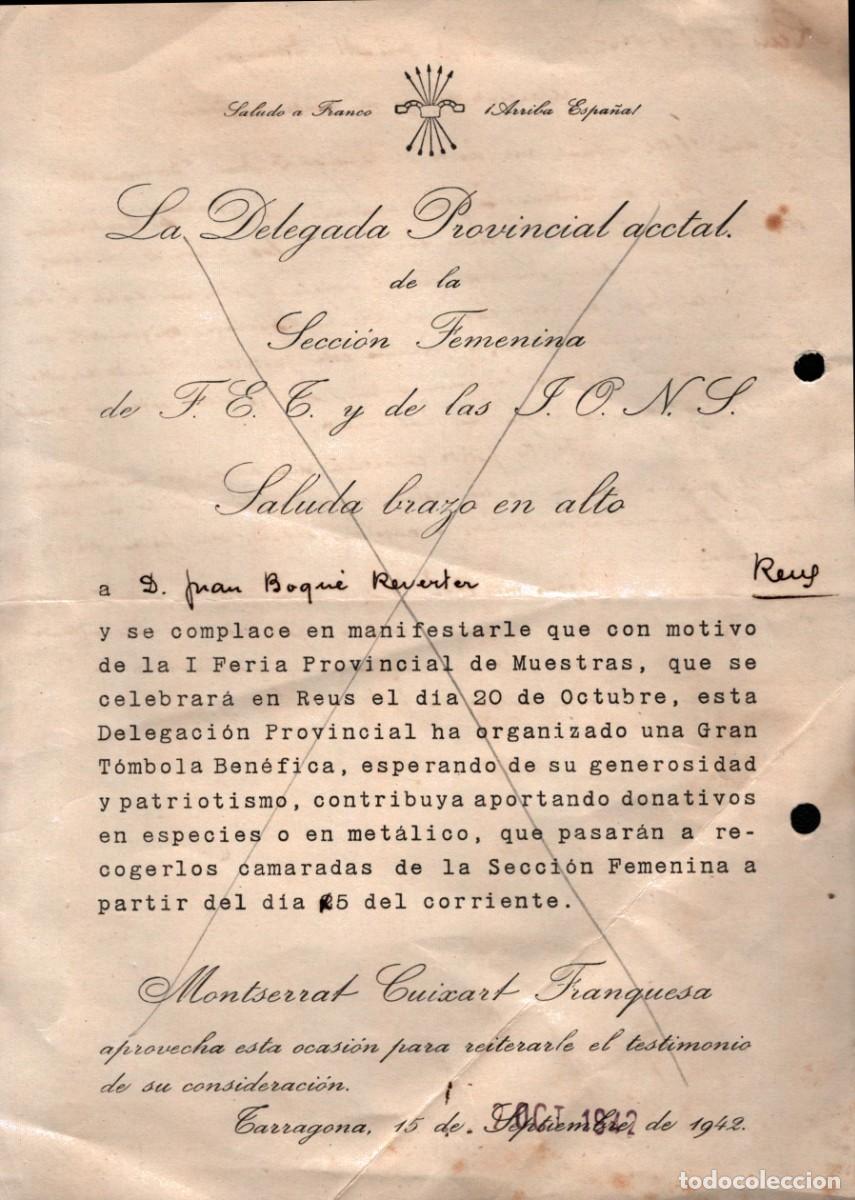 Saludo a Franco ¡Arriba España!
La Delegada Provincial acctal.
de la
Sección Femenina
de F. E. T. y de las J. O. N. S.
Saluda brazo en alto
a D. Juan Boqué Reverter Reus
y se complace en manifestarle que con motivo
de la I Feria Provincial de Muestras, que se
celebrará en Reus el día 20 de Octubre, esta
Delegación Provincial ha organizado una Gran
Tómbola Benéfica, esperando de su generosidad
y patriotismo, contribuya aportando donativos
en especies o en metálico, que pasarán a re-
cogerlos camaradas de la Sección Femenina a
partir del día 5 del corriente.
Montserrat Cuixart Franquesa
aprovecha esta ocasión para reiterarle el testimonio
de su consideración.
Tarragona, 15 de Septiembre de 1942.
OCT 1942
todocoleccion